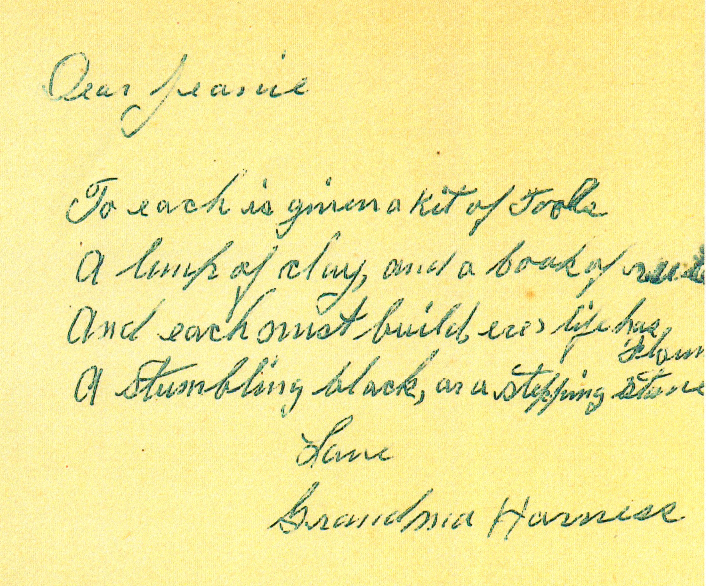 Dear Jeanie
To each is given a Kit of Tools
A lump of clay, and a book of rules
And each must build, ere life has
flown
A stumbling block, or a stepping stone
Love
Grandma Harness